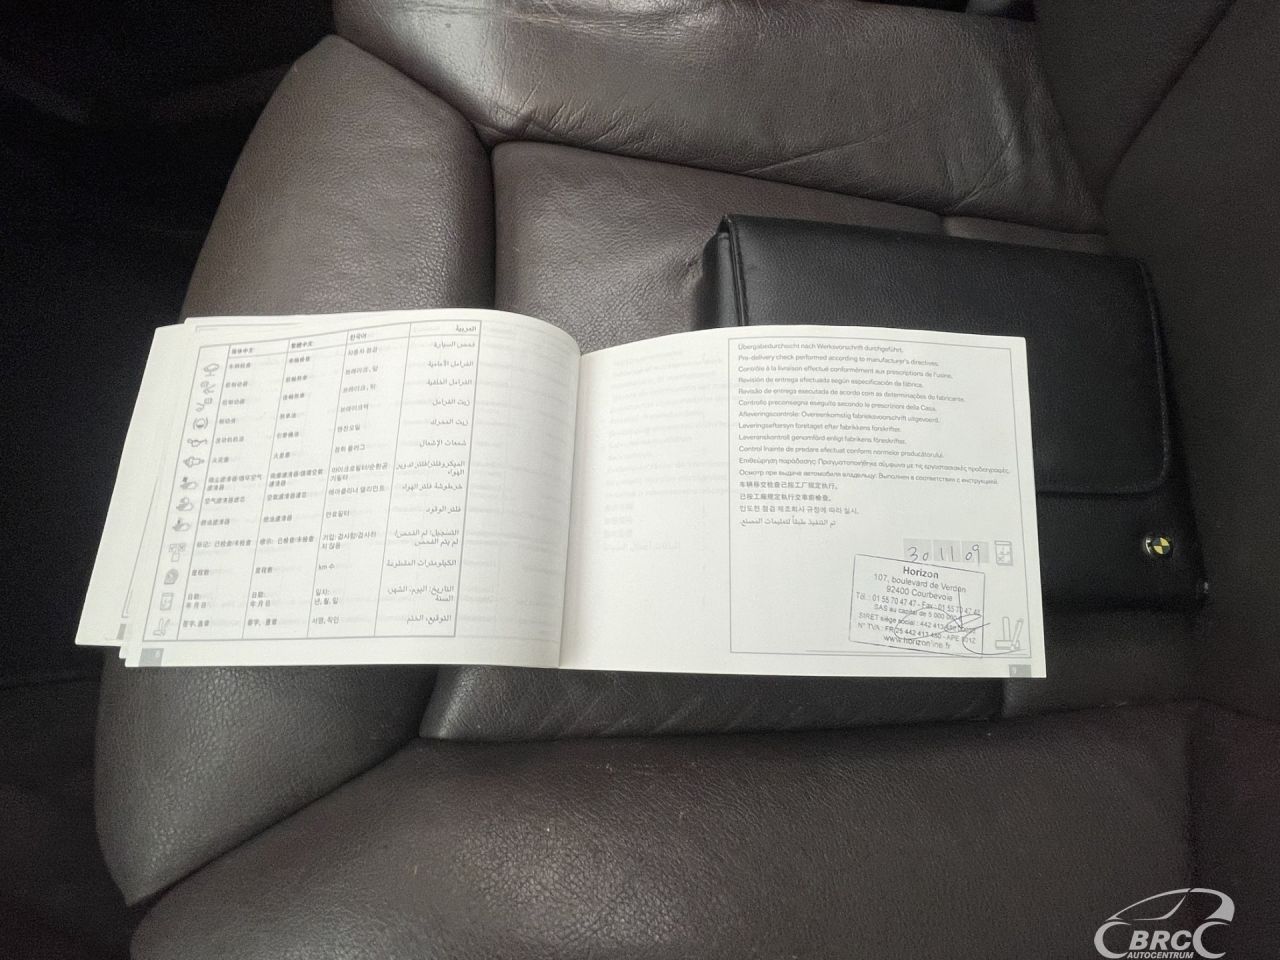 简体中文 繁體中文 한국어 العربية
자동차 점검 فحص السيارة
브레이크, 앞 الفرامل الأمامية
브레이크, 뒤 الفرامل الخلفية
زيت الفرامل
엔진오일 زيت المحرك
점화 플러그 شمعات الإشعال
에어클리너 엘리먼트 خرطوشة فلتر الهواء
연료필터 فلتر الوقود
km 수 الكيلومترات المقطوعة
日期: 日期: 일자: التاريخ: اليوم، الشهر،
年 月 日 年 月 日 년, 월, 일 السنة
서명, 직인 التوقيع، الختم
8
Übergabedurchsicht nach Werksvorschrift durchgeführt.
Pre-delivery check performed according to manufacturer's directives.
Contrôle à la livraison effectué conformément aux prescriptions de l'usine.
Revisión de entrega efectuada según especificación de fábrica.
Revisão de entrega executada de acordo com as determinações do fabricante.
Controllo preconsegna eseguito secondo le prescrizioni della Casa.
Afleveringscontrole: Overeenkomstig fabrieksvoorschrift uitgevoerd.
Leveringseftersyn foretaget efter fabrikkens forskrifter.
Leveranskontroll genomförd enligt fabrikens föreskrifter.
Control înainte de predare efectuat conform normelor producătorului.
Επιθεώρηση παράδοσης: Πραγματοποιήθηκε σύμφωνα με τις εργοστασιακές προδιαγραφές.
Осмотр при выдаче автомобиля владельцу: Выполнен в соответствии с инструкцией.
车辆移交检查已按工厂规定执行。
已按工廠規定執行交車前檢查。
인도전 점검 제조회사 규정에 따라 실시.
تم التنفيذ طبقاً لتعليمات المصنع.
30 11 09
Horizon
107, boulevard de Verdun
92400 Courbevoie
Tél. : 01 55 70 47 47 - Fax : 01 55 70 47 48
SAS au capital de 5 000 000
SIRET siège social : 442 413
N° TVA : FR 25 442 413 480 - APE
www.horizononline.fr
9
BRC
AUTOCENTRUM